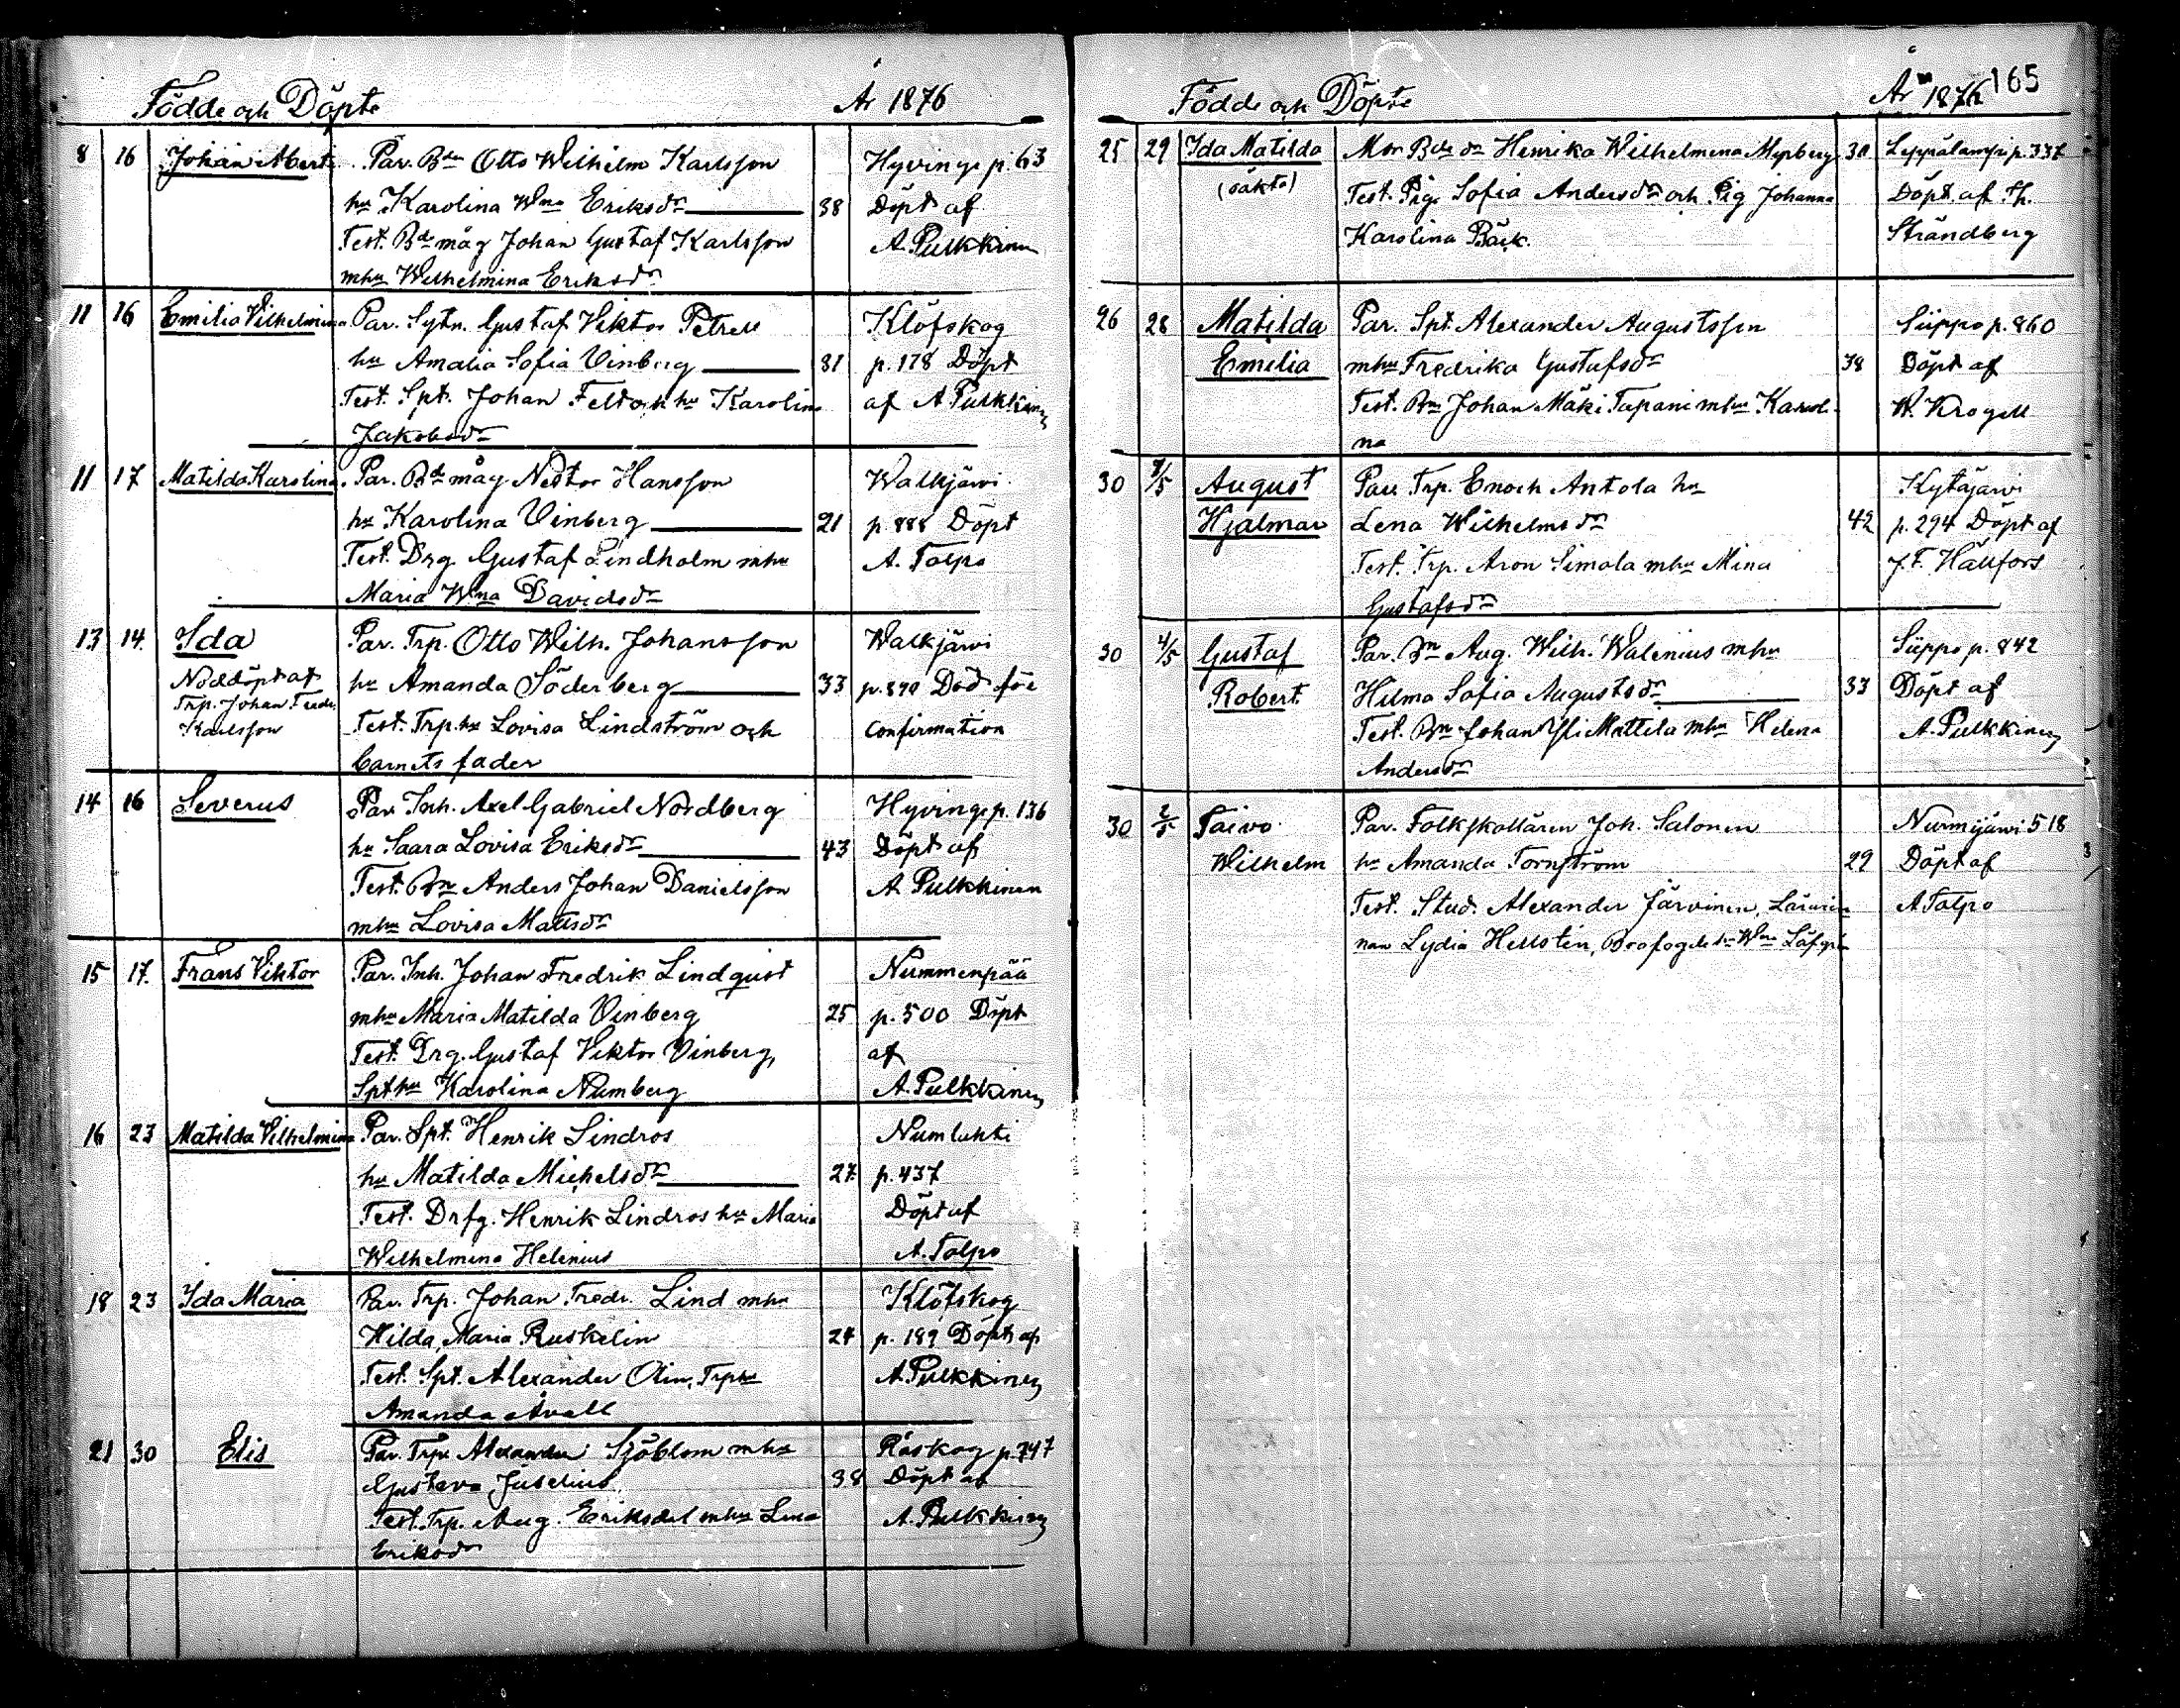 Födde och Döpte År 1876
8 16 Johan Albert Par. Bdn Otto Wilhelm Karlsson Hyvinge p. 63
hu Karolina Wna Eriksdr 38 Döpt af
Test. Bdemåg Johan Gustaf Karlsson A. Pulkkinen
mhu Wilhelmina Eriksdr
11 16 Emilia Vilhelmina Par. Sytn. Gustaf Viktor Petrell Klöfskog
hu Amalia Sofia Vinberg 31 p. 178 Döpt
Test. Spt. Johan Felt och hu Karolina af A Pulkkinen
Jakobsdr
11 17 Matilda Karolina Par. Bdemåg Nestor Hansson Walkjärvi
hu Karolina Vinberg 21 p. 888 Döpt
Test. Drg Gustaf Lindholm mhu A. Talpo
Maria Wna Davidsdr
13 14 Ida Par. Trp. Otto Wilh. Johansson Walkjärvi
Nöddöpt af hu Amanda Söderberg 33 p. 890 Död före
Trp. Johan Fredr. Karlsson Test. Trp.hu Lovisa Lindström och confirmation
barnets fader
14 16 Severus Par Inh. Axel Gabriel Nordberg Hyvinge p. 136
hu Saara Lovisa Eriksdr 43 Döpt af
Test. Bn Anders Johan Danielsson A Pulkkinen
mhu Lovisa Mattsdr
15 17. Frans Viktor Par. Inh. Johan Fredrik Lindqvist Nummenpää
mhu Maria Matilda Vinberg 25 p. 500 Döpt
Test. Drg. Gustaf Viktor Vinberg, af
Spthu Karolina Numberg A. Pulkkinen
16 23 Matilda Vilhelmina Par. Spt. Henrik Lindros Numlahti
hu Matilda Michelsdr 27 p. 437
Test. Drfg. Henrik Lindros hu Maria Döpt af
Wilhelmina Helenius A. Talpo
18 23 Ida Maria Par. Trp. Johan Fredr. Lind mhu Klöfskog
Hilda Maria Ruskelin 24 p. 189 Döpt af
Test. Spt. Alexander Olin, Trphu A. Pulkkinen
Amanda Avall
21 30 Elis Par. Trp. Alexander Sjöblom mhu Röskog p. 747
Gustava Juselius 38 Döpt af
Test. Trp. Aug. Eriksdal mhu Lena A. Pulkkinen
Eriksdr
Födde och Döpte År 1876 165
25 29 Ida Matilda Mor Bdedr Henrika Wilhelmena Myrberg 30 Leppälampi p. 337
(oäkta) Test. Pig. Sofia Andersdr och Pig Johanna Döpt af Th.
Karolina Bäck. Strandberg
26 28 Matilda Par. Spt. Alexander Augustsson Siippo p. 860
Emilia mhu Fredrika Gustafsdr 38 Döpt af
Test. Bn Johan Mäki Tapani mhu Karoli- K. Krogell
na
30 7/5 August Par. Trp. Enoch Antola hu Kytäjärvi
Hjalmar Lena Wilhelmsdr 42 p. 294 Döpt af
Test. Trp. Aron Simola mhu Mina J. F. Hällfors
Gustafsdr
30 4/5 Gustaf Par. Bn Aug. Wilh. Walenius mhu Siippo p. 842
Robert Hilma Sofia Augustsdr 33 Döpt af
Test. Bn Johan Yli Mattila mhu Helena A. Pulkkinen
Andersdr
30 2/5 Taivo Par. Folkskolläraren Joh. Salonen Nurmijärvi 518
Wilhelm hu Amanda Tornström 29 Döpt af
Test. Stud. Alexander Järvinen, Lärarin- A Talpo
nan Lydia Hellstén, Brofogde hu Wna Löfgrén